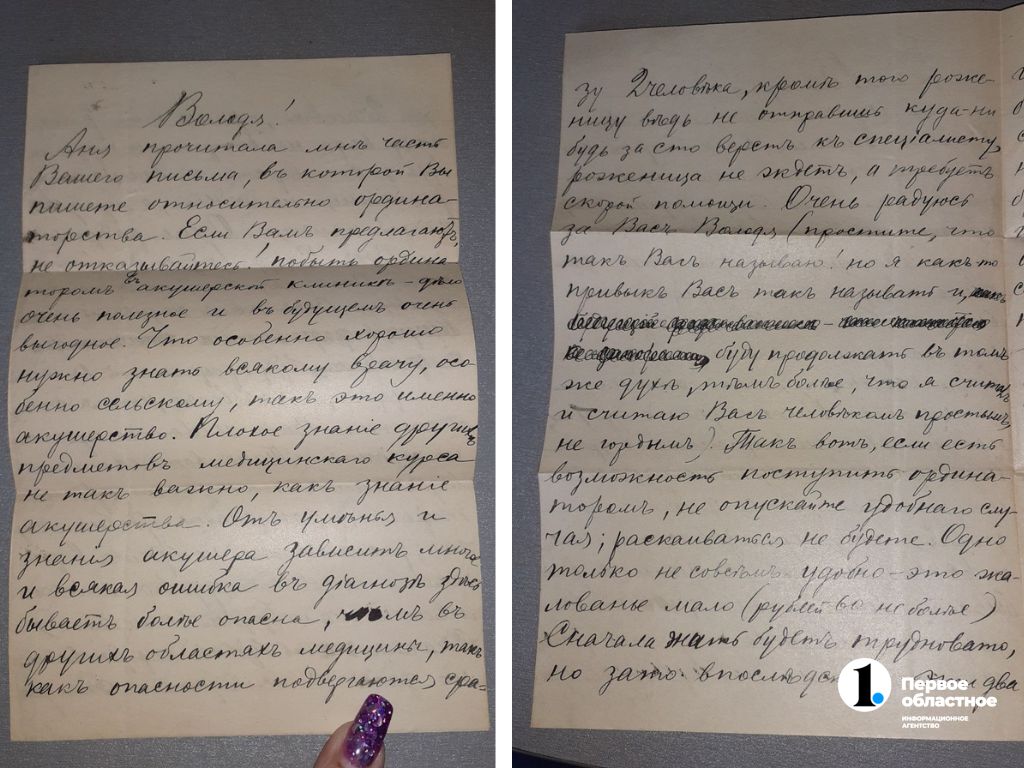 Володя!
Аня прочитала мнѣ часть
Вашего письма, въ которой Вы
пишете относительно ордина-
торства. Если Вамъ предлагаютъ,
не отказывайтесь! побыть ордина
торомъ въ акушерской клиникѣ – дѣло
очень полезное и въ будущемъ очень
выгодное. Что особенно хорошо
нужно знать всякому врачу, осо-
бенно сельскому, такъ это именно
акушерство. Плохое знаніе другихъ
предметовъ медицинскаго курса
не такъ важно, какъ знаніе
акушерства. Отъ умѣнья и
знанія акушера зависитъ много
и всякая ошибка въ діагнозѣ здѣсь
бываетъ болѣе опасна, чѣмъ въ
другихъ областяхъ медицины, такъ
какъ опасности подвергаются сра-
зу 2 человѣка, кромѣ того роже-
ницу вѣдь не отправишь куда-ни
будь за сто верстъ къ спеціалисту,
роженица не ждетъ, а требуетъ
скорой помощи. Очень радуюсь
за Васъ Володя (простите, что
такъ Васъ называю! но я какъ-то
привыкъ Васъ такъ называть и
буду продолжать въ томъ
же духѣ, тѣмъ болѣе, что я считалъ
и считаю Васъ человѣкомъ простымъ,
не гордымъ). Такъ вотъ, если есть
возможность поступить ордина-
торомъ, не опускайте удобнаго слу-
чая; раскаиваться не будете. Одно
только не совсѣмъ удобно – это жа-
лованье мало (рублей 60 не болѣе)
Сначала жить будетъ трудновато,
но зато впослѣдс два
1. Первое
областное
ИНФОРМАЦИОННОЕ
АГЕНТСТВО